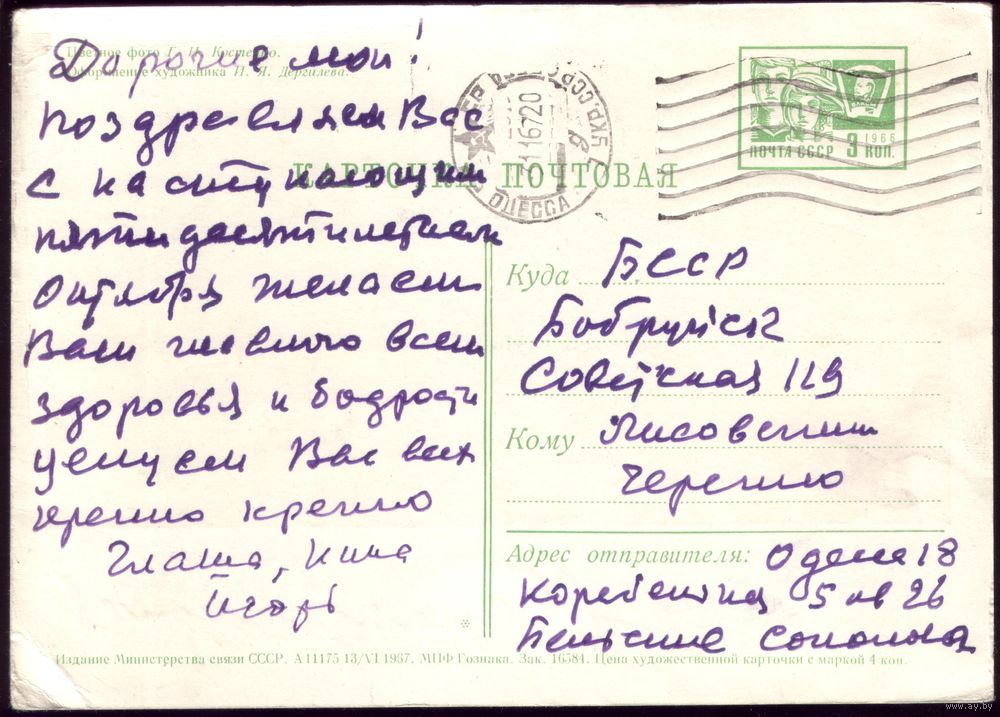 Цветное фото Г. И. Костенко.
Оформление художника И. Я. Дергилева.
Дорогие мои!
Поздравляем Вас
с наступающим
пятидесятилетием
Октября желаем
Вам главного всем
здоровья и бодрости
целуем Вас всех
крепко крепко
Глаша, Нина
Игорь
КАРТОЧКА ПОЧТОВАЯ
ОДЕССА
ПОЧТА СССР 3 КОП.
1966
Куда БССР
Бобруйск
Советская 119
Кому Лисовским
Черепко
Адрес отправителя: Одесса 18
5 кв 26
Бельские
Издание Министерства связи СССР. А 11175 13/VI 1967. МПФ Гознака. Зак. 16584. Цена художественной карточки с маркой 4 коп.
www.ay.by